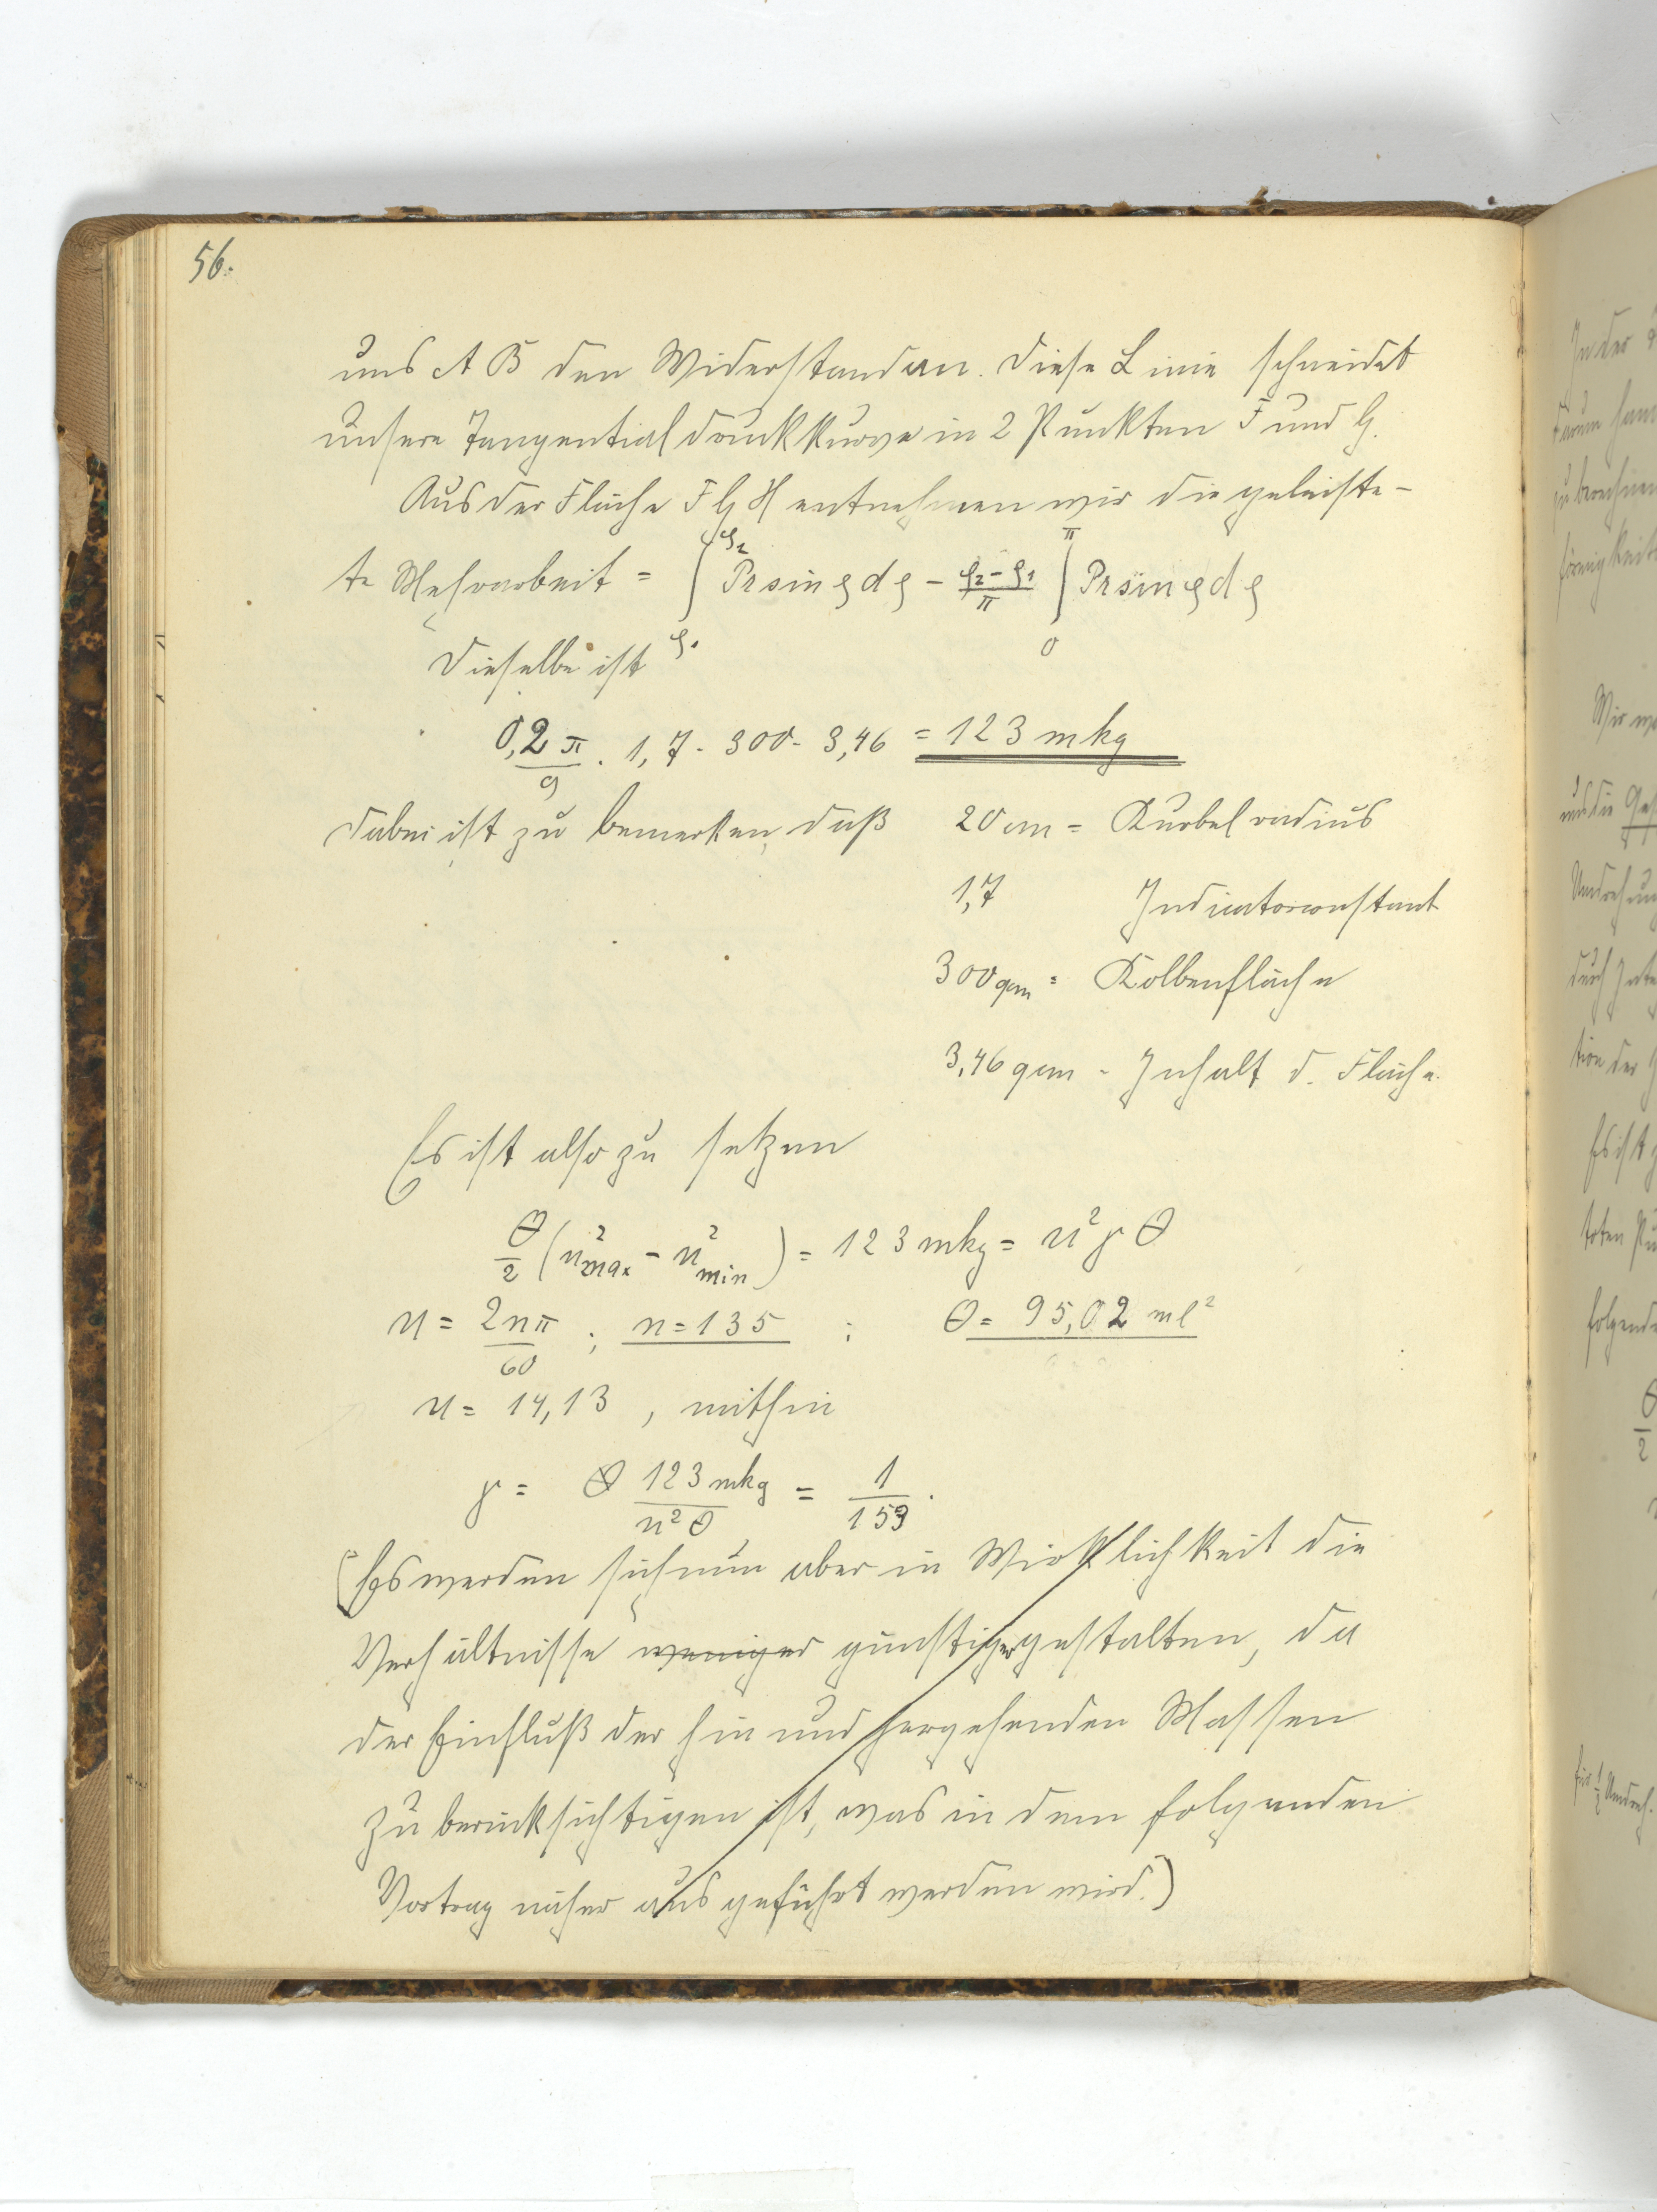 56.
uns A B den Widerstand an. Diese Linie schneidet
unsere Tangentialdruckkurve in 2 Punkten F und G.
Aus der Fläche F G H entnehmen wir die geleiste-
te Mehrarbeit = ∫_{φ1}^{φ2} Pr sin φ dφ - (φ2 - φ1)/π ∫_0^π Pr sin φ dφ
Dieselbe ist
0,2 π/9 . 1,7 . 300 . 3,46 = 123 mkg
Dabei ist zu bemerken, daß 20 cm = Kurbelradius
1,7 Indicatorconstant
300 qcm = Kolbenfläche
3,46 qcm - Inhalt d. Fläche.
Es ist also zu setzen
Θ/2 (u²max - u²min) = 123 mkg = u² γ Θ
u = 2nπ/60 ; n = 135 ; Θ = 95,02 ml²
u = 14,13 , mithin
γ = 123 mkg/u²Θ = 1/153.
(Es werden sich nun aber in Wirklichkeit die
Verhältnisse weniger günstiger gestalten, da
der Einfluß der hin und hergehenden Massen
zu berücksichtigen ist, was in dem folgenden
Vortrag näher ausgeführt werden wird.)